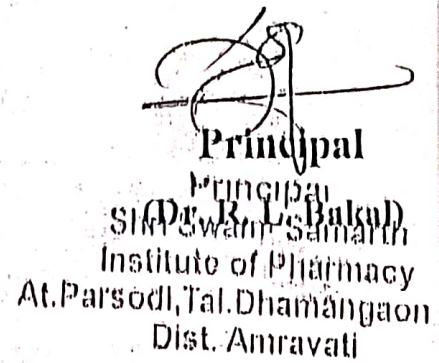 Principal
Principal
(Dr. R. L. Bakal)
Shri Swami Samarth
Institute of Pharmacy
At.Parsodi,Tal.Dhamangaon
Dist. Amravati